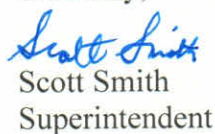 Scott Smith
Scott Smith
Superintendent